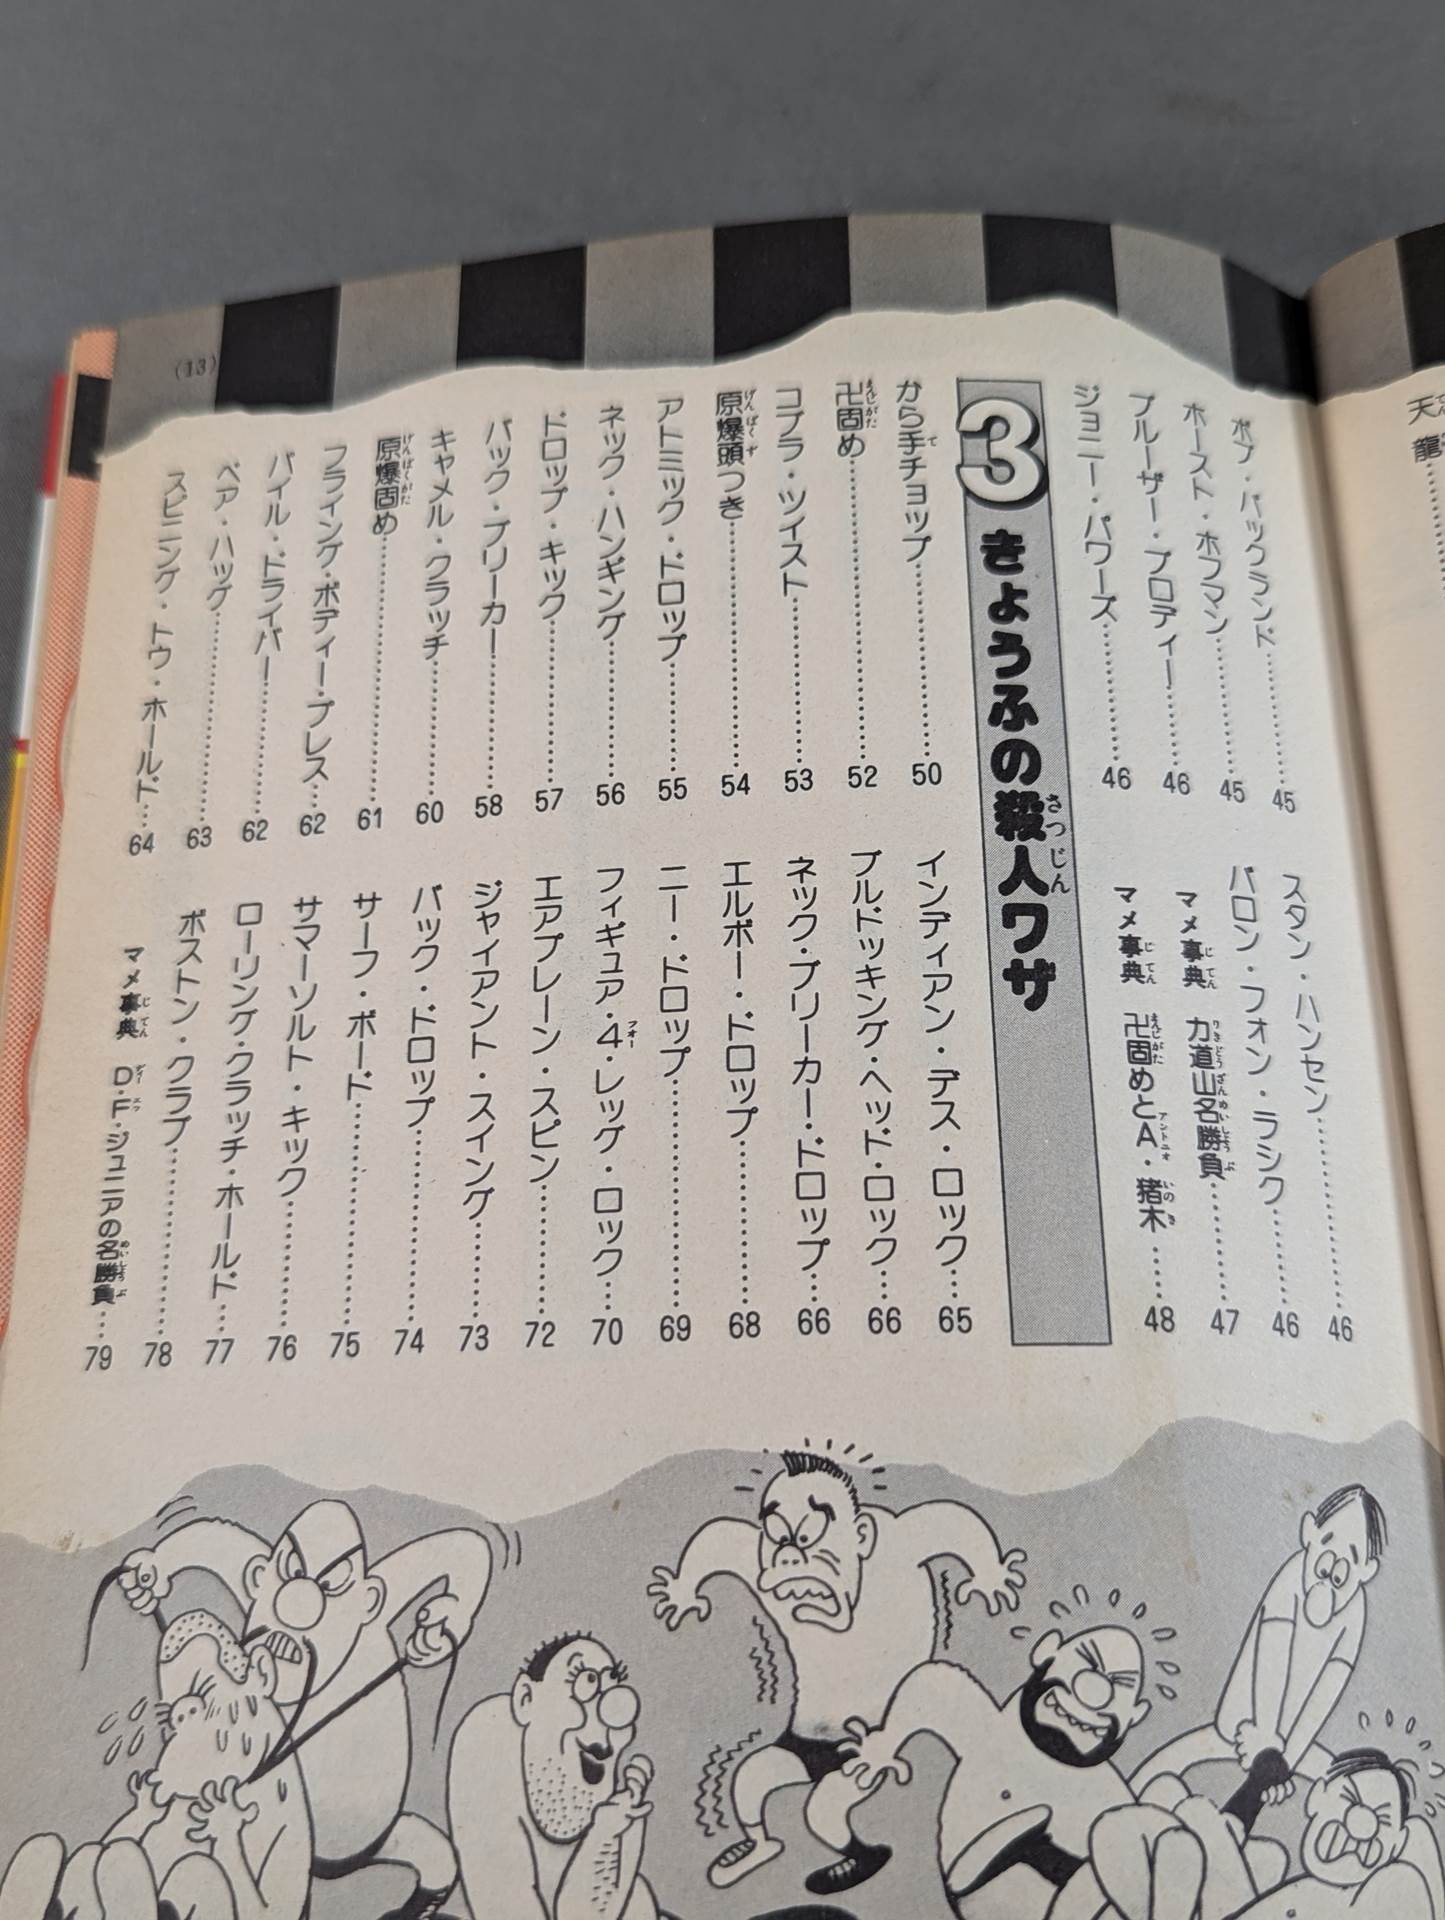 天龍
ボブ・バックランド……45
ホースト・ホフマン……45
ブルーザー・ブロディー……46
ジョニー・パワーズ……46
スタン・ハンセン……46
バロン・フォン・ラシク……46
マメ事典 力道山名勝負……47
マメ事典 卍固めとA・猪木……48
3 きょうふの殺人ワザ
から手チョップ……50
卍固め……52
コブラ・ツイスト……53
原爆頭つき……54
アトミック・ドロップ……55
ネック・ハンギング……56
ドロップ・キック……57
バック・ブリーカー……58
キャメル・クラッチ……60
原爆固め……61
フライング・ボディー・プレス……62
パイル・ドライバー……62
ベア・ハッグ……63
スピニング・トウ・ホールド……64
インディアン・デス・ロック……65
ブルドッキング・ヘッド・ロック……66
ネック・ブリーカー・ドロップ……66
エルボー・ドロップ……68
ニー・ドロップ……69
フィギュア・4・レッグ・ロック……70
エアプレーン・スピン……72
ジャイアント・スイング……73
バック・ドロップ……74
サーフ・ボード……75
サマーソルト・キック……76
ローリング・クラッチ・ホールド……77
ボストン・クラブ……78
マメ事典 D・F・ジュニアの名勝負……79
(13)